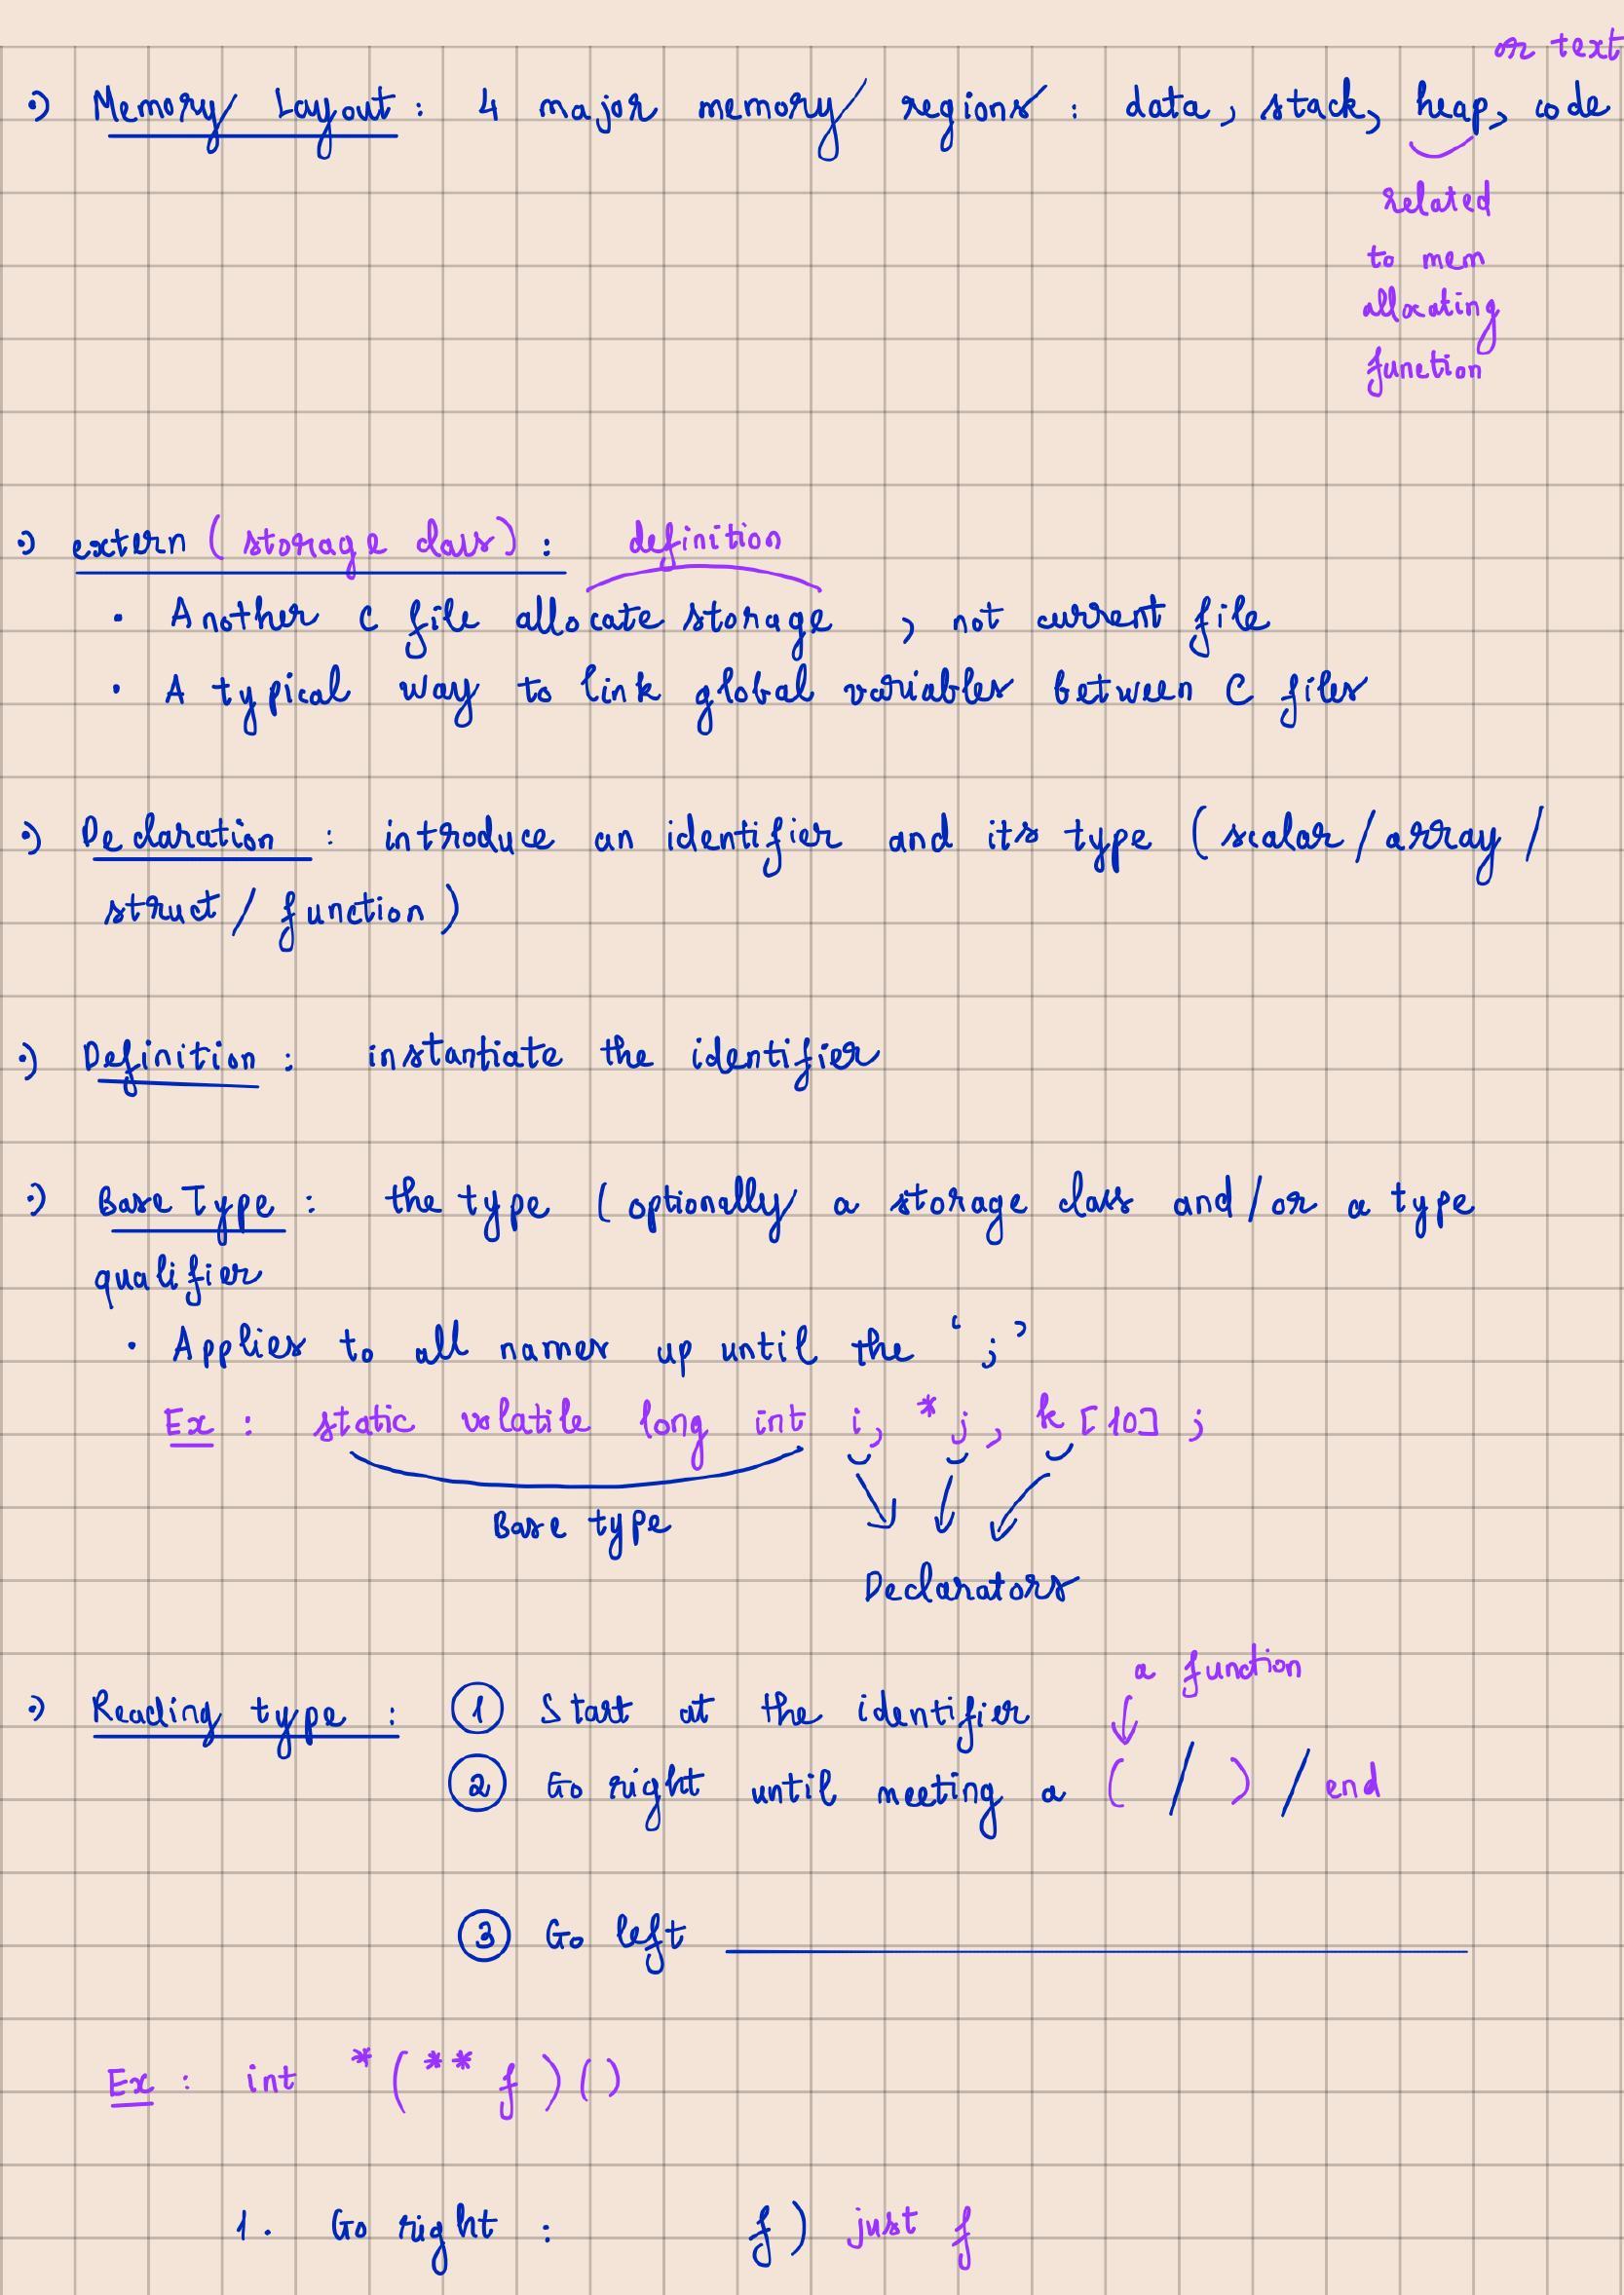 or text
:) Memory Layout : 4 major memory regions : data, stack, heap, code
related
to mem
allocating
function
:) extern (storage class) : definition
• Another C file allocate storage , not current file
• A typical way to link global variables between C files
:) Declaration : introduce an identifier and its type (scalar / array /
struct / function)
:) Definition : instantiate the identifier
:) Base Type : the type (optionally a storage class and/or a type
qualifier
• Applies to all names up until the ‘ ; ’
Ex : static volatile long int i, * j, k [10] ;
Base type
Declarators
a function
:) Reading type : ① Start at the identifier
② Go right until meeting a ( / ) / end
③ Go left
Ex : int *( ** f )()
1. Go right : f ) just f